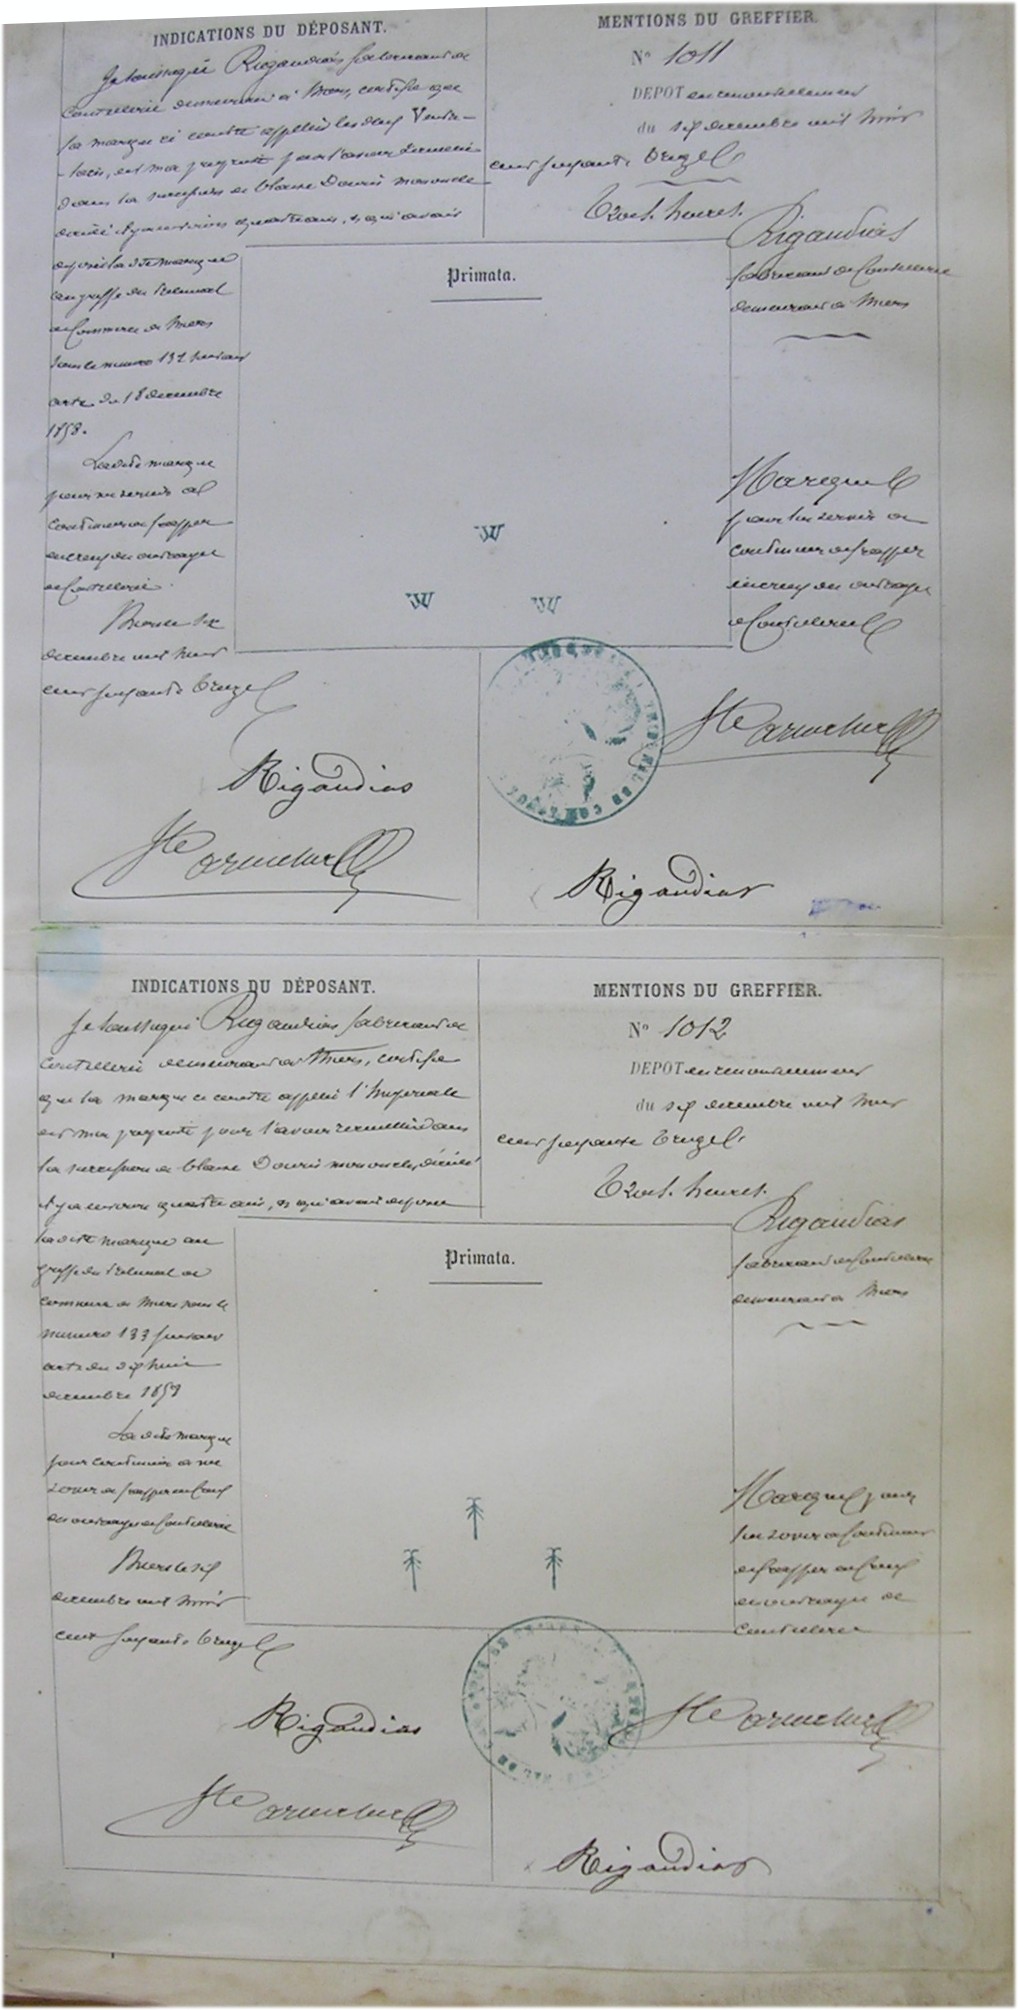 INDICATIONS DU DÉPOSANT.
Je soussigné Rigaudias fabricant de
Coutellerie demeurant à Thiers, certifie que
la marque ci contre appellée les deux
est ma propriété pour l'avoir recueillie
dans la succession de Blaise Douris mon oncle
décédé il y a environ quatre ans, & qui avait
déposé la dite marque
au greffe du Tribunal
de Commerce de Thiers
sous le numéro 132 suivant
acte du 18 décembre
1858.
La dite marque
pour me servir et
continuer de frapper
en creux des ouvrages
de Coutellerie.
Thiers le six
décembre mil huit
cent soixante treize
Rigaudias
MENTIONS DU GREFFIER.
N° 1011
DEPOT en renouvellement
du six décembre mil huit
cent soixante treize
Trois heures.
Rigaudias
fabricant de Coutellerie
demeurant à Thiers
Primata.
Marque
pour lui servir a
continuer de frapper
en creux des ouvrages
de Coutellerie
TRIBUNAL DE COMMERCE
Rigaudias
INDICATIONS DU DÉPOSANT.
Je soussigné Rigaudias fabricant de
Coutellerie demeurant à Thiers, certifie
que la marque ci contre appellée l'Impériale
est ma propriété pour l'avoir recueillie dans
la succession de Blaise Douris mon oncle, décédé
il y a environ quatre ans, & qui avait déposé
la dite marque au
greffe du Tribunal de
commerce de Thiers sous le
numéro 133 suivant
acte du dix huit
décembre 1858
La dite marque
pour continuer a me
servir de frapper en creux
des ouvrages de Coutellerie
Thiers le six
décembre mil huit
cent soixante treize
Rigaudias
MENTIONS DU GREFFIER.
N° 1012
DEPOT en renouvellement
du six décembre mil huit
cent soixante treize
Trois heures.
Rigaudias
fabricant de Coutellerie
demeurant à Thiers
Primata.
Marque pour
lui servir a continuer
de frapper en creux
des ouvrages de
Coutellerie
Rigaudias